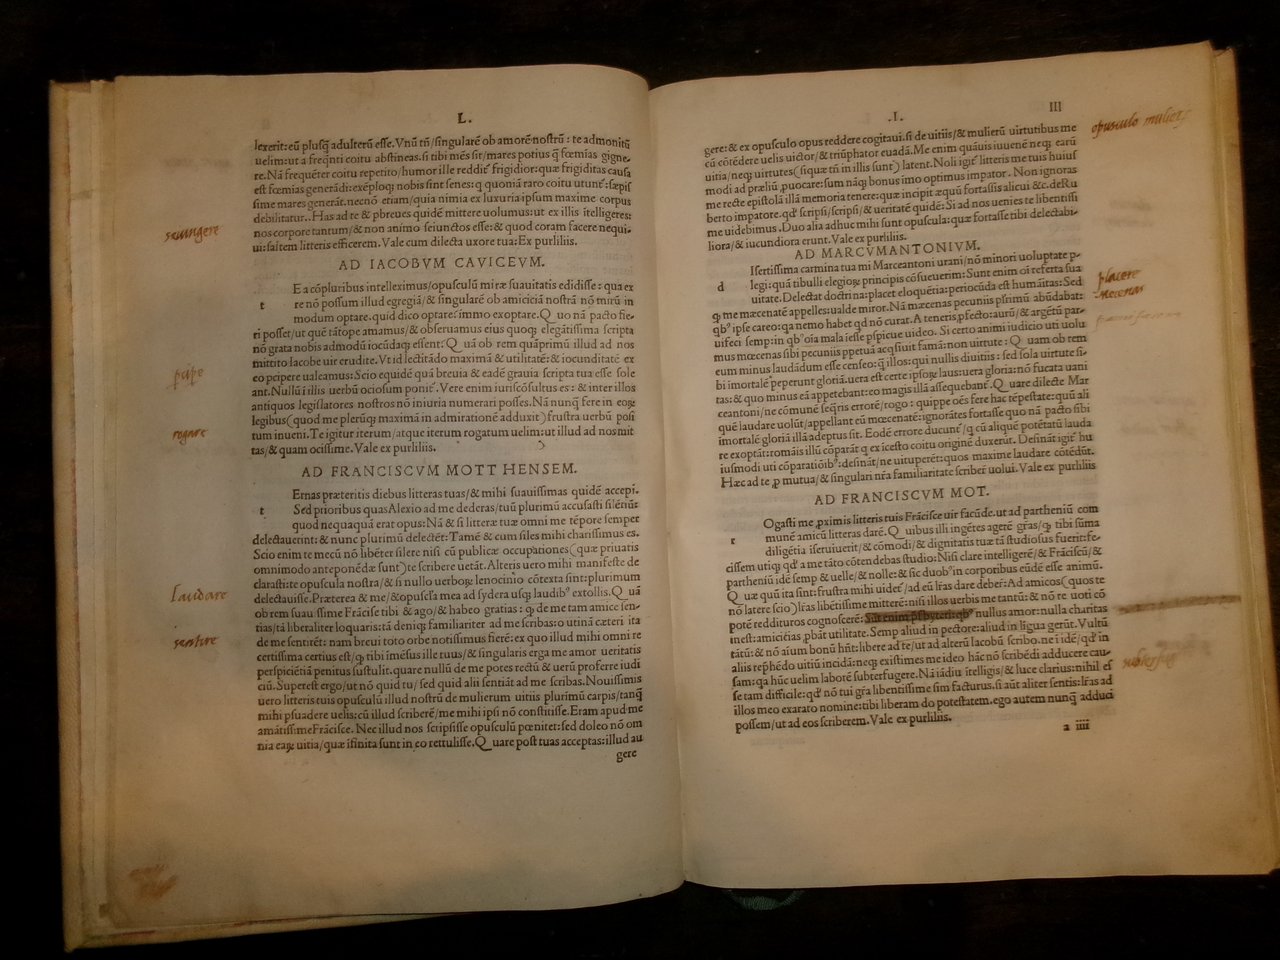 L.
lexerit: eū plusq̄ adulterū esse. Vnū tñ/singularē ob amorē nostrū: te admonitū
uelim: ut a freq̄nti coitu abstineas. si tibi mēs sit/mares potius q̄ fœmias gigne-
re. Nā frequēter coitu repetito/humor ille reddit frigidior: quæ frigiditas causa
est fœmias generādi: exēploq; nobis sint senes: q quoniā raro coitu utunt: sæpis
sime mares generāt. necnō etiam/quia nimia ex luxuria ipsum maxime corpus
debilitatur. Has ad te & p̄breues quidē mittere uolumus: ut ex illis itelligeres:
nos corpore tantum/& non animo seiunctos esse: & quod coram facere nequi-
ui: saltem litteris efficerem. Vale cum dilecta uxore tua: Ex purliliis.
seiungere
AD IACOBVM CAVICEVM.
t E a cōpluribus intelleximus/opusculū miræ suauitatis edidisse: qua ex
re nō possum illud egregiā/& singularē ob amiciciā nostrā nō mirū in
modum optare. quid dico optare? immo exoptare. Quo nā pacto fie-
ri posset/ut quē tātope amamus/& obseruamus eius quoq; elegātissima scripta
nō grata nobis admodū iocūdaq; essent. Quā ob rem quāprimū illud ad nos
mittito Iacobe uir erudite. Vt id lectitādo maximā & utilitatē: & iocunditatē ex
eo pcipere ualeamus: Scio equidē quā breuia & eadē grauia scripta tua esse sole
ant. Nullū i illis uerbū ociosum ponit. Vere enim iuriscōsultus es: & inter illos
antiquos legislatores nostros nō iniuria numerari posses. Nā nunq̄ fere in eoꝝ
legibus (quod me plerūq; maximā in admirationē adduxit) frustra uerbū posi
tum inueni. Te igitur iterum/atque iterum rogatum uelim: ut illud ad nos mit
tas/& quam ocissime. Vale ex purliliis.
rogare
AD FRANCISCVM MOTTHENSEM.
t Ernas præteritis diebus litteras tuas/& mihi suauissimas quidē accepi.
Sed prioribus quas Alexio ad me dederas/tuū plurimū accusasti silētiū:
quod nequaquā erat opus: Nā & si litteræ tuæ omni me tēpore semper
delectauerint: & nunc plurimū delectēt: Tamē & cum siles mihi charissimus es.
Scio enim te mecū nō libēter silere nisi cū publicæ occupationes (quæ priuatis
omnimodo anteponēdæ sunt) te scribere uetāt. Alteris uero mihi manifeste de
clarasti: te opuscula nostra/& si nullo uerboꝝ lenocinio cōtexta sint: plurimum
delectauisse. Præterea & me/& opuscla mea ad sydera usq; laudib' extollis. Quā
ob rem suauissime Frācisce tibi & ago/& habeo gratias: q de me tam amice sen-
tias/tā liberaliter loquaris: tā deniq; familiariter ad me scribas: o utinā cæteri ita
de me sentirēt: nam breui toto orbe notissimus fierē: ex quo illud mihi omni re
certissima certius est/q tibi īmēsus ille tuus/& singularis erga me amor ueritatis
perspiciēdi penitus sustulit. quare nullū de me potes rectū & uerū proferre iudi
ciū. Superest ergo/ut nō quid tu/sed quid alii sentiāt ad me scribas. Nouissimus
uero litteris tuis opusculū illud nostrū de mulierum uitiis plurimū carpis/tanq̄
mihi psuadere uelis: cū illud scriberē/me mihi ipsi nō constitisse. Eram apud me
amātissime Frācisce. Nec illud nos scripsisse opusculū pœnitet: sed doleo nō om
nia eaꝝ uitia/quæ ifinita sunt in eo rettulisse. Quare post tuas acceptas: illud au
gere
laudare
sentire
.I.
III
gere: & ex opusculo opus reddere cogitaui. si de uitiis/& mulierū uirtutibus me
cū cōtēdere uelis uictor/& triūphator euadā. Me enim quāuis iuuenē neq; earū
uitia/neq; uirtutes (siquæ tñ in illis sunt) latent. Noli igit litteris me tuis huius
modi ad præliū puocare: sum nāq; bonus imo optimus impator. Non ignoras
me recte epistolā illā memoria tenere: quæ incipit æquū fortassis alicui &c. de Ru
berto impatore. qd scripsi/scripsi/& ueritatē quidē: Si ad nos uenies te libentissi
me uidebimus. Duo alia adhuc mihi sunt opuscula: quæ fortasse tibi delectabi-
liora/& iucundiora erunt. Vale ex purliliis.
opusculo mulierū
AD MARCVMANTONIVM.
d Isertissima carmina tua mi Marceantoni urani/nō minori uoluptate p-
legi: quā tibulli elegioꝝ principis cōsueuerim: Sunt enim oī referta sua
uitate. Delectat doctrina: placet eloquētia: periocūda est humāitas: Sed
q me mæcenatē appelles: ualde miror. Nā mæcenas pecuniis psrimū abūdabat:
qb' ipse careo: qa nemo habet qd nō curat. A teneris pfecto: aurū/& argētū par-
uifeci semp: in qb' oīa mala iesse pspicue uideo. Si certo animi iudicio uti uolu
mus mœcenas sibi pecuniis ppetuā acqsiuit famā: non uirtute: Quam ob rem
eum minus laudādum esse censeo: q illos: qui nullis diuitiis: sed sola uirtute si-
bi imortalē pepererunt gloriā. uera est certe ipsoꝝ laus: uera gloria: nō fucata uani
tas: & quo minus eā appetebant: eo magis illā assequebant. Quare dilecte Mar
ceantoni/ne cōmunē seqris errorē/rogo: quippe oēs fere hac tēpestate: quū ali
quē laudare uolūt/appellant eū mœcenatē: ignorātes fortasse quo nā pacto sibi
imortalē gloriā illā adeptus sit. Eodē errore ducunt/q cū aliquē potētatū lauda
re exoptāt: romāis illū cōparāt q ex icesto coitu originē duxerūt. Defināt igit hu
iusmodi uti cōparatiōib': desināt/ne uituperēt: quos maxime laudare cōtēdūt.
Hæc ad te p mutua/& singulari nr̄a familiaritate scriber uolui. Vale ex purliliis
placere
mecenas
AD FRANCISCVM MOT.
r Ogasti me pximis litteris tuis Frācisce uir facūde. ut ad partheniū com
munē amicū litteras darē. Quibus illi ingētes agerē grās/q tibi sūma
diligētia iseruiuerit/& cōmodi/& dignitatis tuæ tā studiosus fuerit: fe-
cissem utiq; qd a me tāto cōtendebas studio: Nisi clare intelligerē/& Frāciscū/&
partheniū idē semp & uelle/& nolle: & sic duob' in corporibus eūdē esse animū.
Quæ quū ita sint: frustra mihi uidet/ad eū lr̄as dare deber: Ad amicos (quos te
nō latere scio) lr̄as libētissime mitterē: nisi illos uerbis me tantū: & nō re uoti cō
potē reddituros cognoscerē: Sūt enim p̄sbyteri: qb' nullus amor: nulla charitas
inest: amicitias pbāt utilitate. Semp aliud in pectore: aliud in līgua gerūt. Vultū
tātū: & nō aīum bonū hñt: libere ad te/ut ad alterū Iacobū scribo. ne i idē/qd in
aliis repħēdo uitiū incidā: neq; existimes me ideo hāc nō scribēdi adducere cau-
sam: qa hūc uelim laborē subterfugere. Nā iādiu itelligis/& luce clarius: nihil es
se tam difficile: qd nō tui gr̄a libentissime sim facturus. si aūt aliter sentis: lr̄as ad
illos meo exarato nomine: tibi liberam do potestatem. ego autem nunq̄ adduci
possem/ut ad eos scriberem. Vale ex purliliis.
a iiii
subterfug